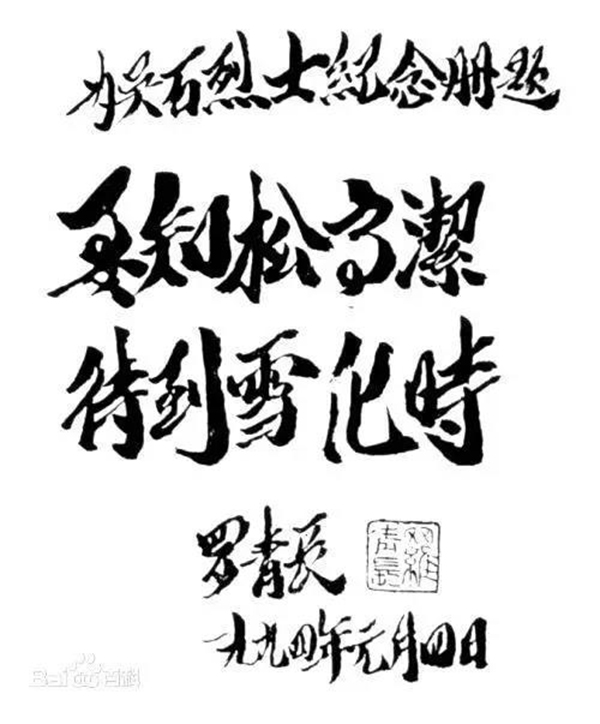 为吴石烈士纪念册题
要知松高潔
待到雪化時
罗青长
一九九四年元月四日
Bai百科